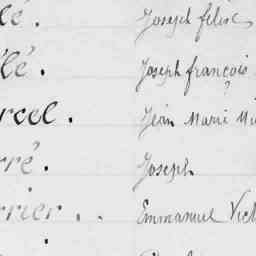 lé. Joseph félix
llé. Joseph françois
?
rcel. Jean Marie
rré. Joseph
rrier.. Emmanuel Vict